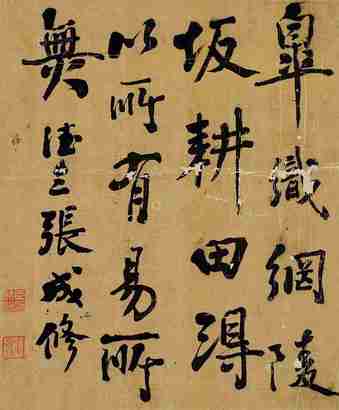 皐織網陵
坂耕田得
以所有易所
無
張成修